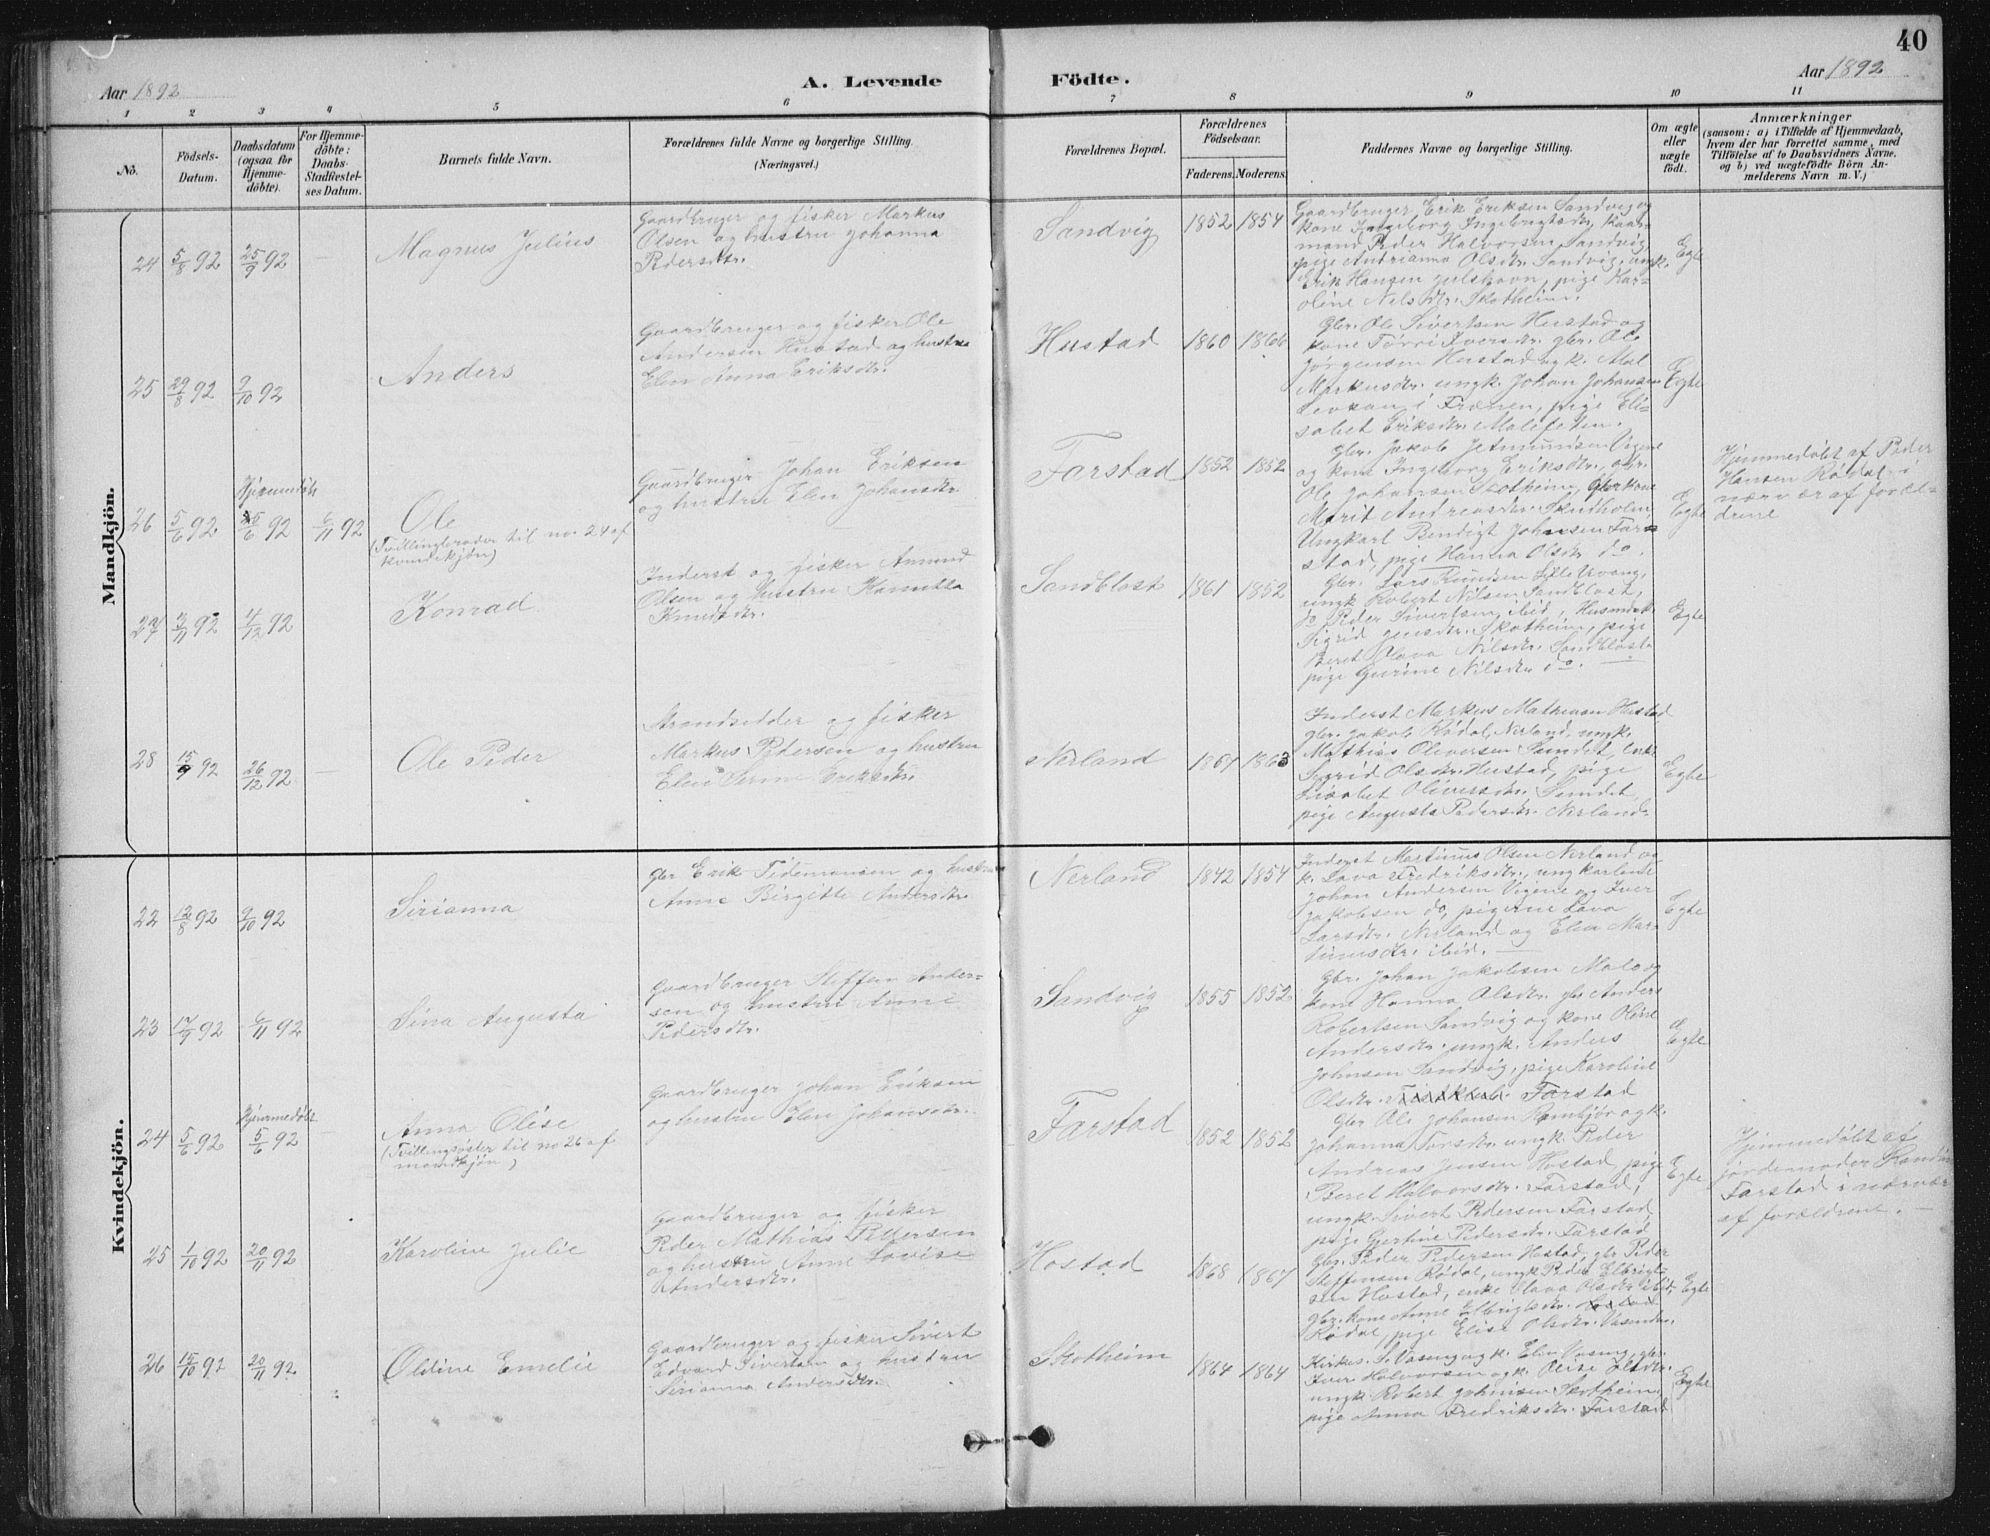 40
Aar 1892
A. Levende Födte.
Aar 1892
1 2 3 4 5 6 7 8 9 10 11
No.
Födsels-Datum.
Daabsdatum (ogsaa for Hjemme-döbte).
For Hjemme-döbte: Daabs-Stadfæstel-ses Datum.
Barnets fulde Navn.
Forældrenes fulde Navne og borgerlige Stilling. (Næringsvei.)
Forældrenes Bopæl.
Forældrenes Födselsaar.
Faderens. Moderens.
Faddernes Navne og borgerlige Stilling.
Om ægte eller uægte födt.
Anmærkninger
(saasom: a) i Tilfælde af Hjemmedaab,
hvem der har forrettet samme, med
Tilföielse af to Daabsvidners Navne,
og b) ved uægtefödte Börn An-
melderens Navn m. V.)
Mandkjön.
24 5/8 92 25/9 92 — Magnus Julius
Gaardbruger og fisker Markus
Olsen og hustru Johanna
Pedersdtr.
Sandvig 1852 1854
Gaardbruger Erik Eriksen Sandvig og
kone Ingeborg Ingebrigtsdtr, Kaar-
mand Peder Halvorsen Sandvig,
pige Andrianna Olsdtr. Sandvig, ungk.
Erik Hansen Julshavn, pige Kar-
oline Nilsdtr. Skotheim.
Egte
25 29/8 92 9/10 92 Anders
Gaardbruger og fisker Ole
Andersen Hustad og hustru
Elen Anna Eriksdtr.
Hustad 1860 1866
Gbr. Ole Sivertsen Hustad og
kone Iversdtr. gbr. Ole
Jørgensen Hustad og k.
Markusdtr. ungk. Johan Johansen
i Frænen, pige Eli-
sabet Eriksdtr.
Egte
26 5/6 92 Hjemmedøbt 5/6 92 6/11 92 Ole
(Tvillingbroder til no. 24 af
kvindekjön)
Gaardbruger Johan Eriksen
og hustru Elen Johansdtr.
Farstad 1852 1852
Gbr. Jakob
og kone Ingeborg Eriksdtr., gbr.
Ole Johansen Skotheim, Gbrkone
Marit Andreasdtr. Skudholm,
Ungkarl Bendigt Johnsen Far-
stad, pige Hanna Olsdtr do.
Egte
Hjemmedøbt af Peder
Hansen Rødal i
nærvær af foræl-
drene
27 3/11 92 4/12 92 Konrad
Inderst og fisker Amund
Olsen og hustru
Knudsdtr.
Sandblost 1861 1852
Gbr. Lars Knudsen
ungk Robert Nilsen Sandblost,
do Peder Sivertsen ibid,
Sigrid Jensdtr. Skotheim, pige
Beret Olava Nilsdtr. Sandblost
pige Gurine Nilsdtr. do. —
Egte
28 15/9 92 26/12 92 — Ole Peder
Strandsidder og fisker
Markus Pedersen og hustru
Elen Eriksdtr.
Nerland 1867 1863
Inderst Markus Mathisen Hustad
gbr. Jakob Rødal, Nerland, ungk.
Mathias Oliversen Sundet, enke
Sigrid Olsdtr. Hustad, pige
Oliversdtr. Sundet
pige Augusta Pedersdtr. Nerland.
Egte
Kvindekjön.
22 12/8 92 9/10 92 Sirianna
Gbr Erik Tidemansen og hustru
Anne Birgitte Andersdtr.
Nerland 1842 1854
Inderst Martinus Olsen Nerland og
k. Lava Fredriksdtr., ungkarlene
Johan Andersen Vigene og Iver
Jakobsen do, pigerne Lava
Larsdtr. Nerland og Elen Mar-
tinusdtr. ibid. —
Egte
23 17/9 92 6/11 92 Sina Augusta
Gaardbruger Steffen Ander-
sen og hustru Anne
Pedersdtr.
Sandvig 1855 1852
Gbr. Johan Jakobsen Male og
kone Hanna Olsdtr. gbr Anders
Robertsen Sandvig og kone Oline
Andersdtr. ungk. Anders
Johnsen Sandvig, pige Karoline
Olsdtr. Farstad
Egte
24 5/6 92 Hjemmedøbt 5/6 92 — Anna Olise
(Tvillingsøster til no 26 af
mandkjön)
Gaardbruger Johan Eriksen
og hustru Elen Johansdtr.
Farstad 1852 1852
Gbr Ole Johansen og k.
Johanna ungk. Peder
Andreas Jensen Hostad, pige
Beret Halvorsdtr. Farstad,
ungk. Sivert Pedersen Farstad
pige Gjertine Pedersdtr. Farstad
Egte
Hjemmedøbt af
jordemoder
Farstad i nærvær
af forældrene. —
25 1/10 92 20/11 92 Karoline Julie
Gaardbruger og fisker
Peder Mathias Pettersen
og hustru Anne Lovise
Andersdtr.
Hostad 1868 1867
Gbr. Peder Pedersen Hostad, gbr Peder
Steffensen Rødal, ungk Peder Elbrigt-
sen Hostad, enke Olava Olsdtr ibid,
Gbr. kone Anne Elbrigtsdtr.
Rødal, pige Elise Olsdtr.
Egte
26 15/10 92 20/11 92 Oldine Emelie
Gaardbruger og fisker Sivert
Edvard Sivertsen og hustru
Sirianna Andersdtr.
Skotheim 1864 1864
Kirkes. S. Vasing og k. Elen Vasing, gbr.
Iver Halvorsen og k. Olise Olsdtr.
ungk. Robert Johnsen Skotheim,
pige Anna Fredriksdtr. Farstad
Egte